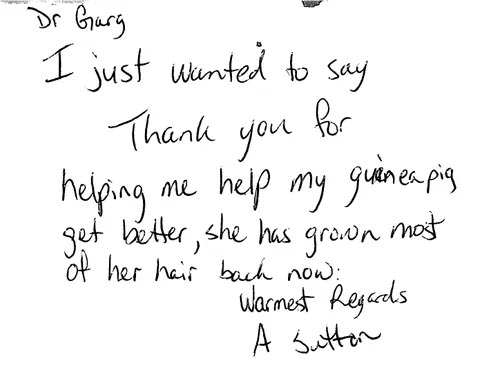 Dr Garg
I just wanted to say
Thank you for
helping me help my guineapig
get better, she has grown most
of her hair back now:
Warmest Regards
A Sutton